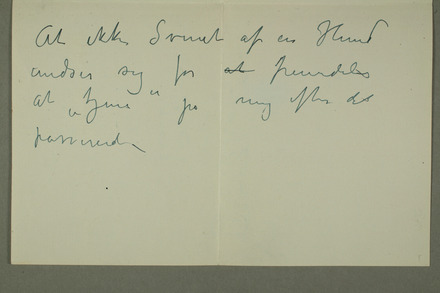 At ikke Svinet af en Hund
undser sig for at fremdeles
at "hjem" på mig efter det
passerede